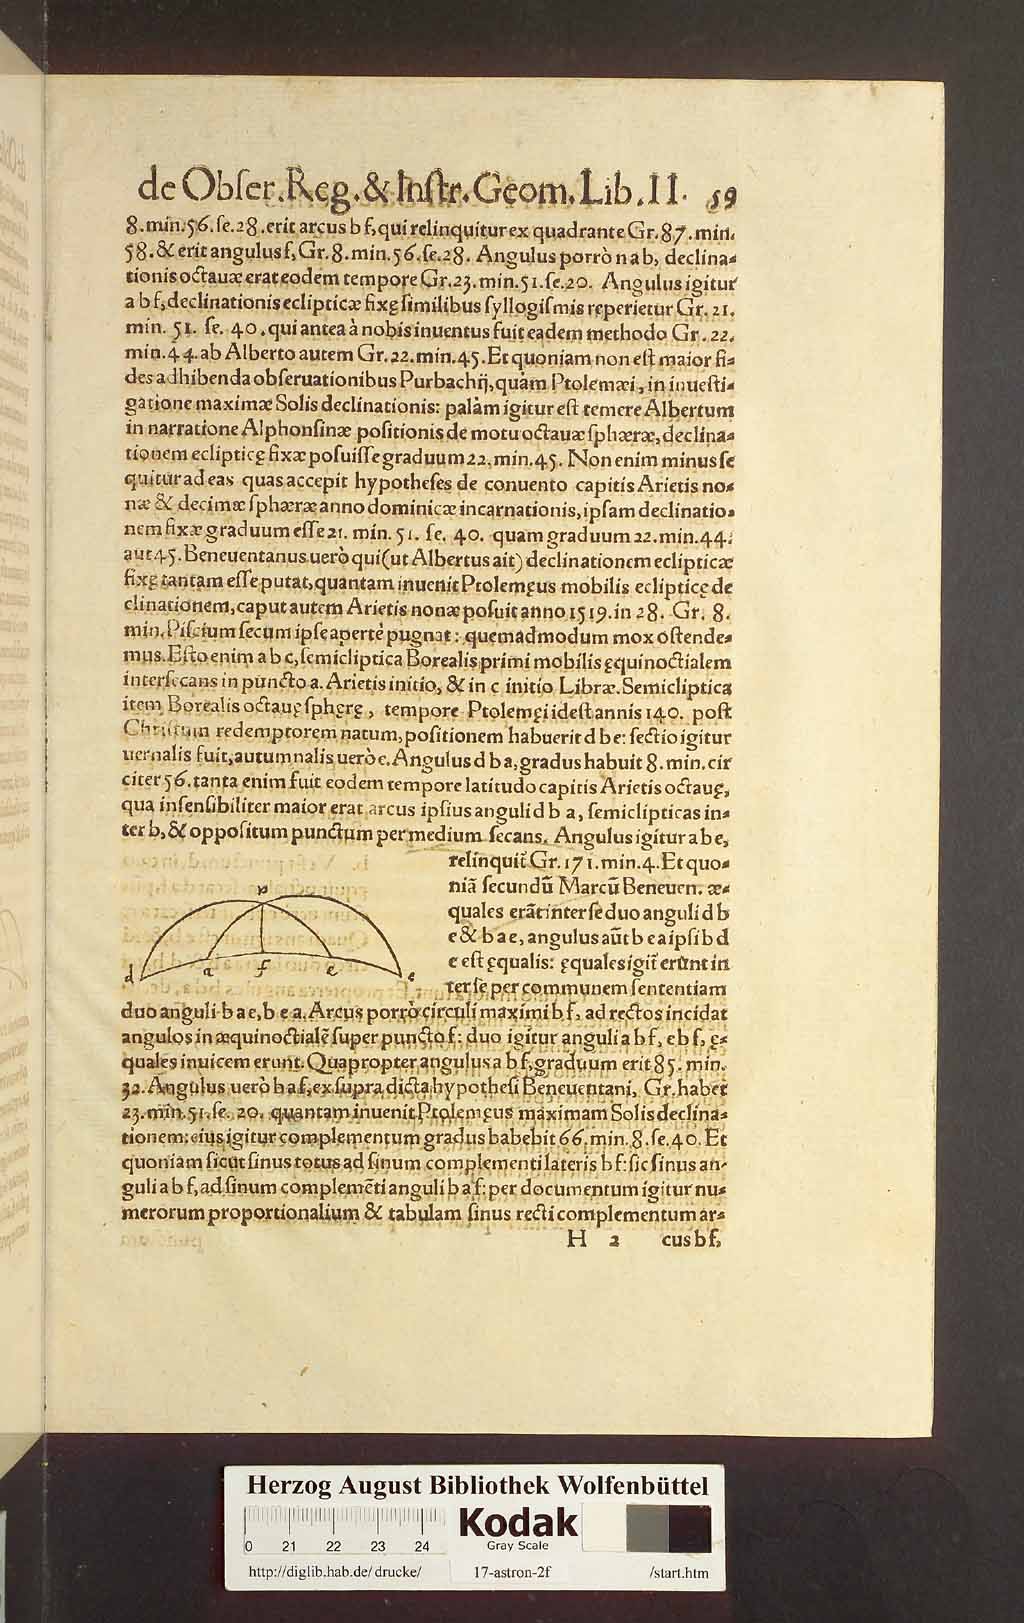 de Obſer.Reg.& Inſtr.Geom.Lib.II. 59
8.min.56.ſe.28.erit arcus b f, qui relinquitur ex quadrante Gr.87.min.
58.& erit angulus f, Gr.8.min.56.ſe.28. Angulus porrò n a b, declina-
tionis octauæ erat eodem tempore Gr.23.min.51.ſe.20. Angulus igitur
a b f, declinationis eclipticæ fixę ſimilibus ſyllogiſmis reperietur Gr.21.
min. 51. ſe. 40. qui antea à nobis inuentus fuit eadem methodo Gr.22.
min.44. ab Alberto autem Gr.22.min.45. Et quoniam non eſt maior fi-
des adhibenda obſeruationibus Purbachij, quàm Ptolemæi, in inueſti-
gatione maximæ Solis declinationis: palàm igitur eſt temere Albertum
in narratione Alphonſinæ poſitionis de motu octauæ ſphæræ, declina-
tionem eclipticę fixæ poſuiſſe graduum 22.min.45. Non enim minus ſe
quitur ad eas quas accepit hypotheſes de conuento capitis Arietis no-
næ & decimæ ſphæræ anno dominicæ incarnationis, ipſam declinatio-
nem fixæ graduum eſſe 21. min. 51. ſe. 40. quam graduum 22.min.44.
aut 45. Beneuentanus uerò qui (ut Albertus ait) declinationem eclipticæ
fixę tantam eſſe putat, quantam inuenit Ptolemęus mobilis eclipticę de
clinationem, caput autem Arietis nonæ poſuit anno 1519. in 28. Gr. 8.
min. Piſcium ſecum ipſe apertè pugnat: quemadmodum mox oſtende-
mus. Eſto enim a b c, ſemicliptica Borealis primi mobilis ęquinoctialem
interſecans in puncto a. Arietis initio, & in c initio Libræ. Semicliptica
item Borealis octauę ſphęrę, tempore Ptolemęi id eſt annis 140. poſt
Chriſtum redemptorem natum, poſitionem habuerit d b e: ſectio igitur
uernalis fuit, autumnalis uerò e. Angulus d b a, gradus habuit 8. min. cir
citer 56. tanta enim fuit eodem tempore latitudo capitis Arietis octauę,
qua inſenſibiliter maior erat arcus ipſius anguli d b a, ſemiclipticas in-
ter b, & oppoſitum punctum per medium ſecans. Angulus igitur a b e,
relinquit̃ Gr.171.min.4. Et quo-
niã ſecundũ Marcũ Beneuen. æ-
quales erãt inter ſe duo anguli d b
e & b a e, angulus aũt b e a ipſi b d
e eſt ęqualis: ęquales igit̃ erunt in
ter ſe per communem ſententiam
b
d a f e c
duo anguli b a e, b e a. Arcus porrò circuli maximi b f, ad rectos incidat
angulos in æquinoctialẽ ſuper puncto f: duo igitur anguli a b f, e b f, ę-
quales inuicem erunt. Quapropter angulus a b f, graduum erit 85. min.
32. Angulus uerò b a f, ex ſupra dicta hypotheſi Beneuentani, Gr. habet
23. min.51.ſe. 20. quantam inuenit Ptolemęus maximam Solis declina-
tionem: eius igitur complementum gradus babebit 66.min.8.ſe.40. Et
quoniam ſicut ſinus totus ad ſinum complementi lateris b f: ſic ſinus an-
guli a b f, ad ſinum complemẽti anguli b a f: per documentum igitur nu-
merorum proportionalium & tabulam ſinus recti complementum ar-
H 2 cus b f,
Herzog August Bibliothek Wolfenbüttel
Kodak
Gray Scale
0 21 22 23 24
http://diglib.hab.de/drucke/ 17-astron-2f /start.htm